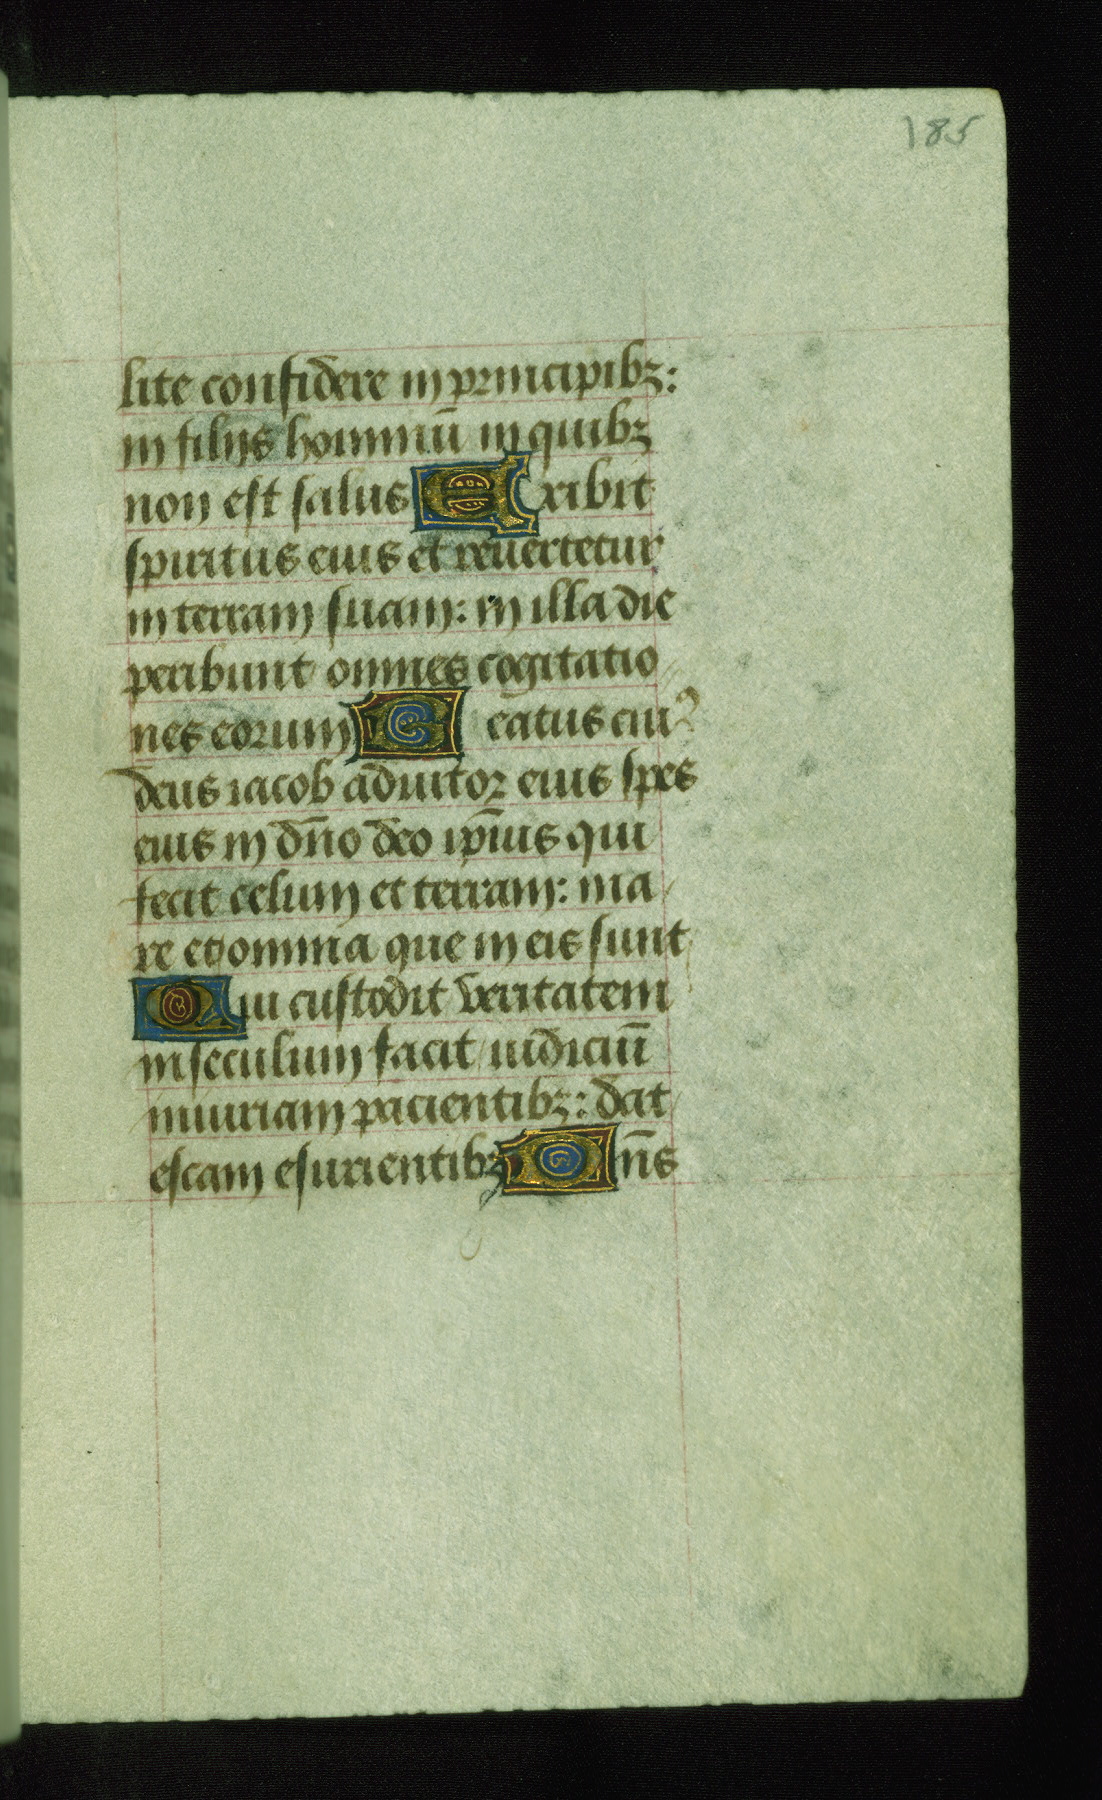 185
lite confidere in principibꝫ:
in filijs hominiū in quibꝫ
non est salus Exibit
spiritus eius et reuertetur
in terram suam: in illa die
peribunt omnes cogitatio
nes eorum Beatus cuiꝰ
deus iacob adiutor eius spes
eius in dn̄o deo ip̄ius qui
fecit celum et terram: ma
re et omnia que in eis sunt
Qui custodit veritatem
in seculum facit iudiciū
iniuriam pacientibꝫ: dat
escam esurientibꝫ Dn̄s